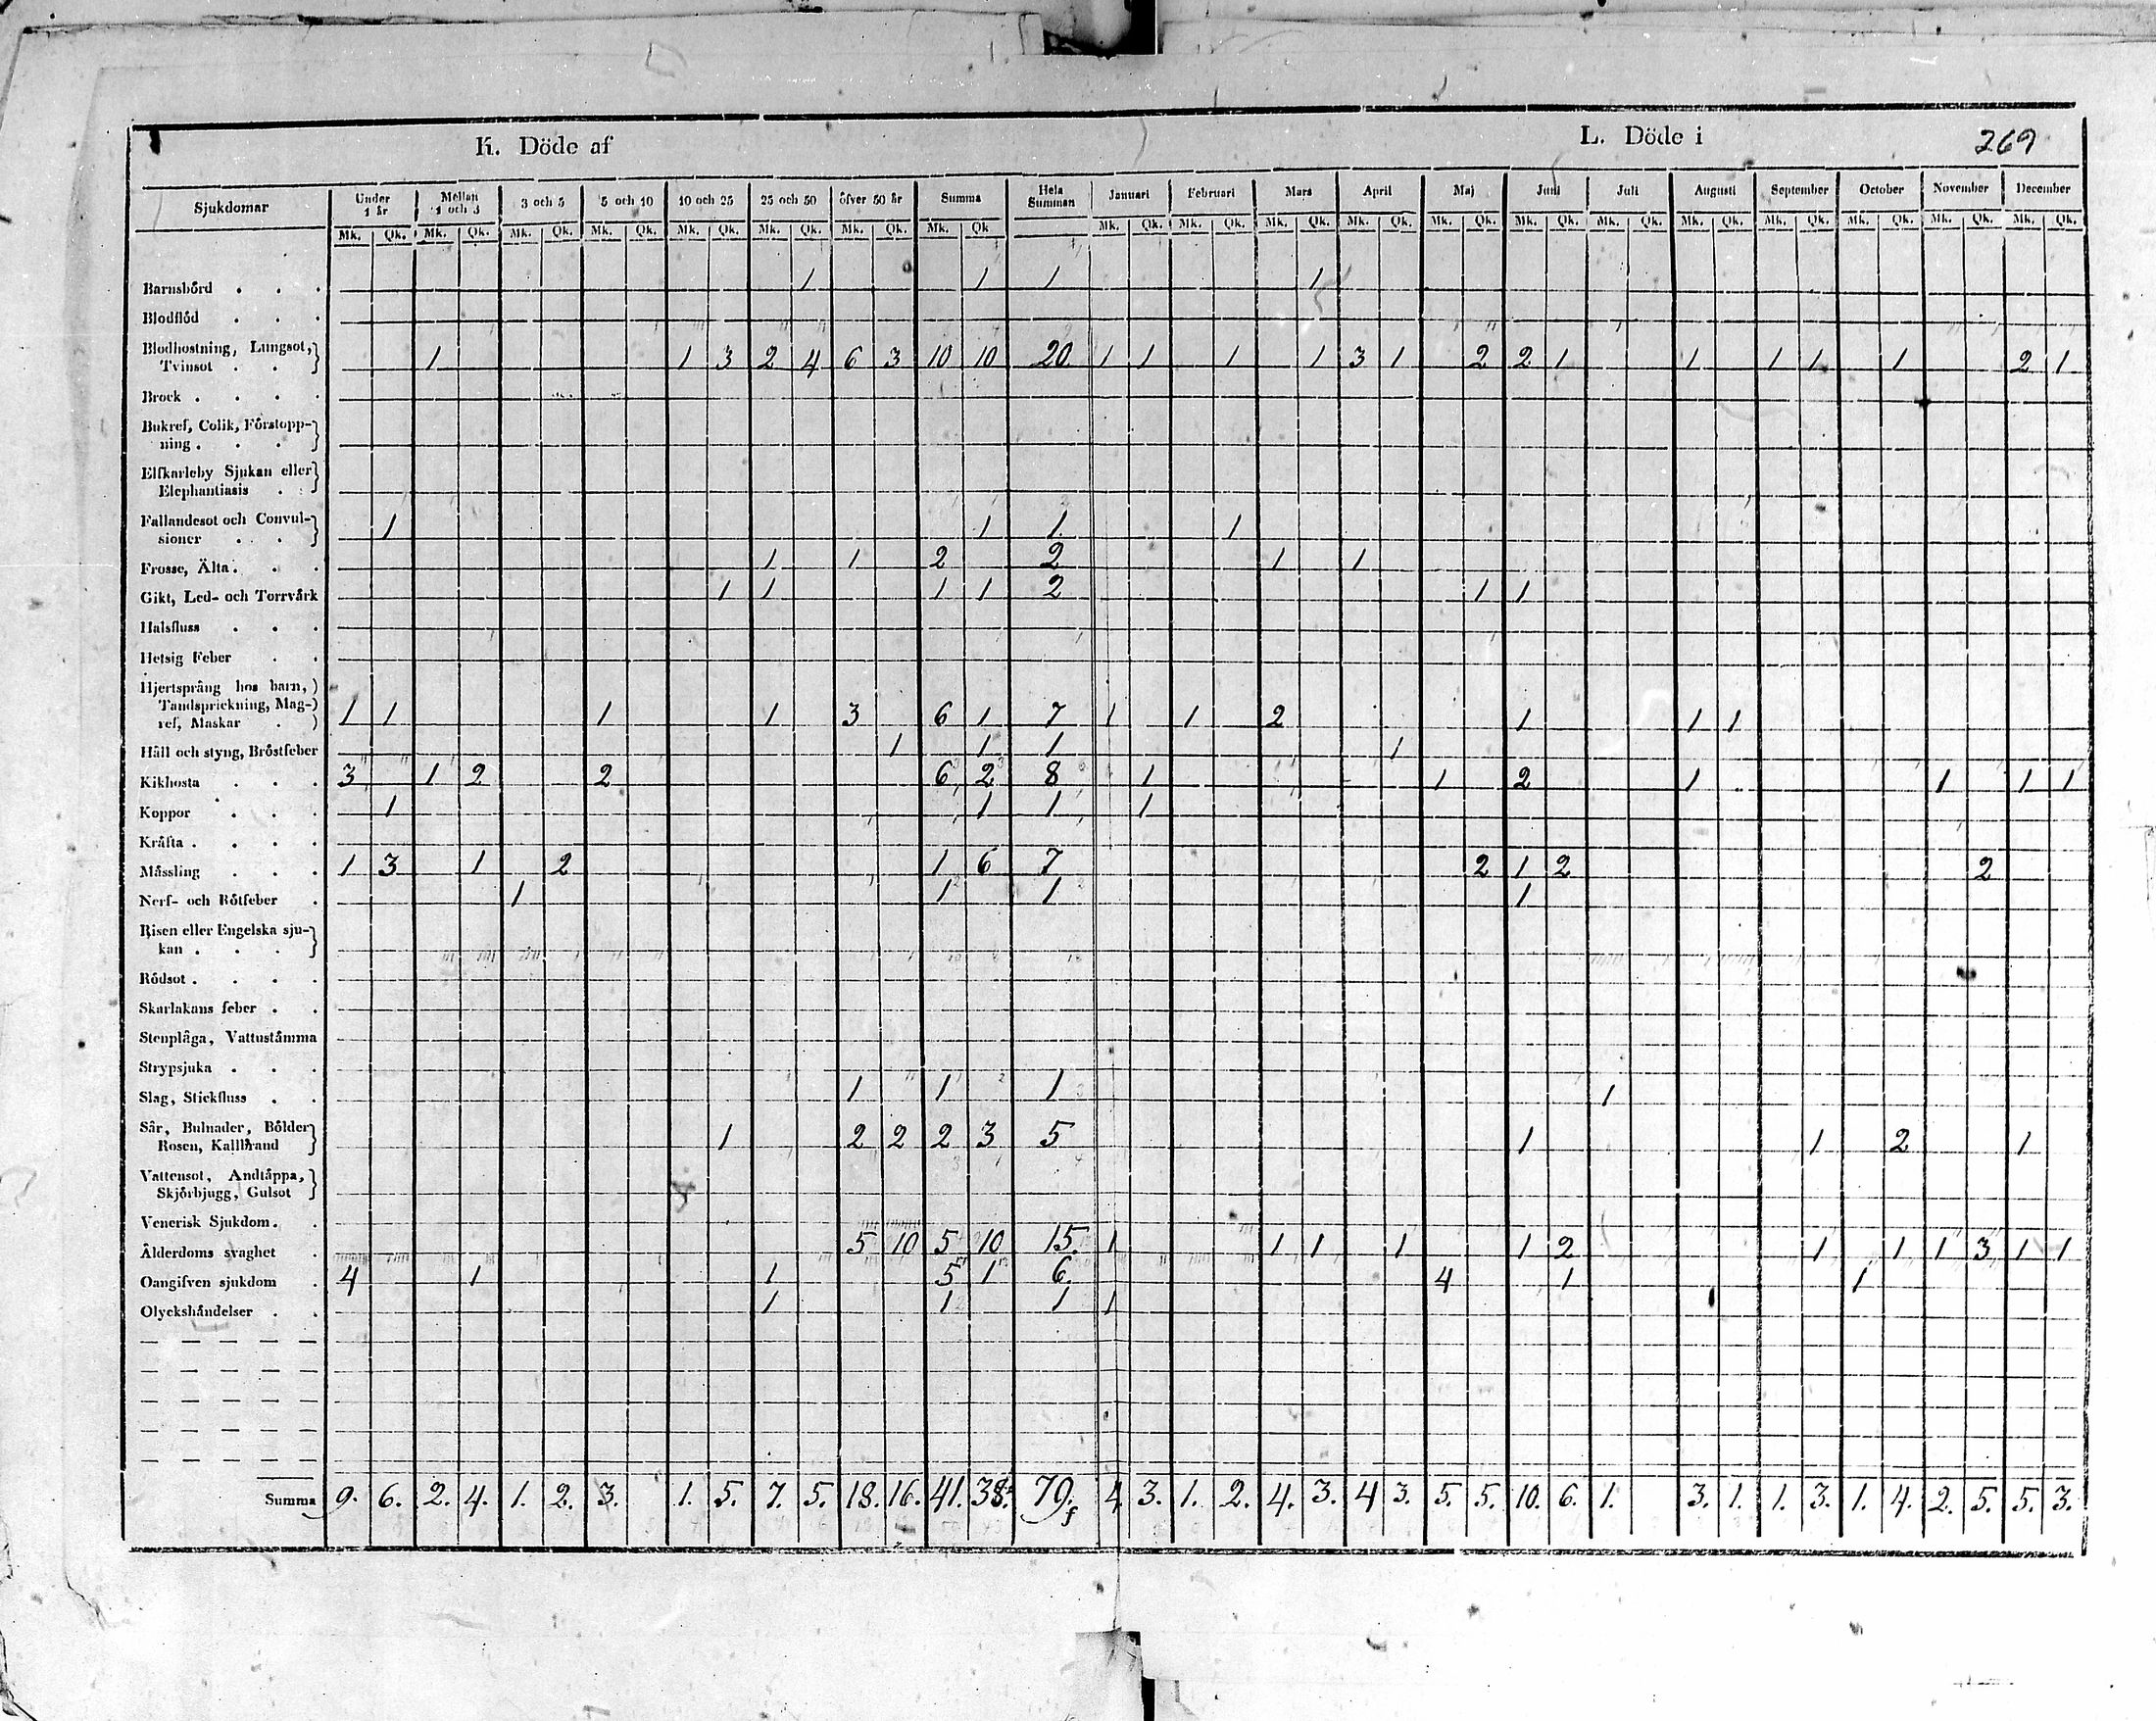 K. Döde af L. Döde i 269
Sjukdomar Under 1 år Mellan 1 och 3 3 och 5 5 och 10 10 och 25 25 och 50 öfver 50 år Summa Hela Summan Januari Februari Mars April Maj Juni Juli Augusti September October November December
Mk. Qk. Mk. Qk. Mk. Qk. Mk. Qk. Mk. Qk. Mk. Qk. Mk. Qk. Mk. Qk Mk. Qk. Mk. Qk. Mk. Qk. Mk. Qk. Mk. Qk. Mk. Qk. Mk. Qk. Mk. Qk. Mk. Qk. Mk. Qk. Mk. Qk. Mk. Qk.
Barnsbörd . . . 1 1 1 1
Blodflöd . . .
Blodhostning, Lungsot,
Tvinsot . . 1 1 3 2 4 6 3 10 10 20 1 1 1 1 3 1 2 2 1 1 1 1 1 2 1
Brock . . . .
Bukref, Colik, Förstopp-
ning . . .
Elfkarleby Sjukan eller
Elephantiasis . .
Fallandesot och Convul-
sioner . . . 1 1 1 1
Frosse, Älta . . . 1 1 2 2 1 1
Gikt, Led- och Torrvärk 1 1 1 1 2 1 1
Halsfluss . . .
Hetsig Feber . .
Hjertsprång hos barn,
Tandsprickning, Mag-
ref, Maskar . 1 1 1 1 3 6 1 7 1 1 2 1 1 1
Håll och styng, Bröstfeber 1 1 1 1
Kikhosta . . . 3 1 2 2 6 2 8 1 1 2 1 1 1 1
Koppor . . . 1 1 1 1
Kräfta . . . .
Mässling . . . 1 3 1 2 1 6 7 2 1 2 2
Nerf- och Rötfeber . 1 1 1 1
Risen eller Engelska sju-
kan . . .
Rödsot . . . .
Skarlakans feber . .
Stenplåga, Vattustämma
Strypsjuka . . .
Slag, Stickfluss . . 1 1 1 1
Sår, Bulnader, Bölder
Rosen, Kallbrand 1 2 2 2 3 5 1 1 2 1
Vattensot, Andtäppa,
Skjörbjugg, Gulsot
Venerisk Sjukdom . .
Ålderdoms svaghet . 5 10 5 10 15. 1 1 1 1 1 2 1 1 1 3 1 1
Oangifven sjukdom . 4 1 1 5 1 6. 4 1 1
Olyckshändelser . . 1 1 1 1
Summa 9. 6. 2. 4. 1. 2. 3. 1. 5. 7. 5. 18. 16. 41. 38. 79. 4 3. 1. 2. 4. 3. 4 3. 5. 5. 10. 6. 1. 3. 1. 1. 3. 1. 4. 2. 5. 5. 3.